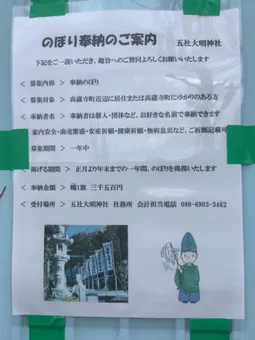 のぼり奉納のご案内　五社大明神社
下記をご一読いただき、趣旨へのご賛同よろしくお願いいたします
＜ 募集内容 ＞ 奉納のぼり
＜ 募集対象 ＞ 高蔵寺町近辺に居住または高蔵寺町にゆかりのある方
＜ 奉納者名 ＞ 奉納者は個人・団体など、お好きな名前で奉納できます
家内安全・商売繁盛・安産祈願・健康祈願・無病息災など、ご祈願記載可
＜ 募集期間 ＞ 一年中
＜ 掲げる期間 ＞ 正月より年末までの一年間、のぼりを掲揚いたします
＜ 奉納金額 ＞ 幟1旗 三千五百円
＜ 受付場所 ＞ 五社大明神社 社務所 会計担当電話 080-6903-3462